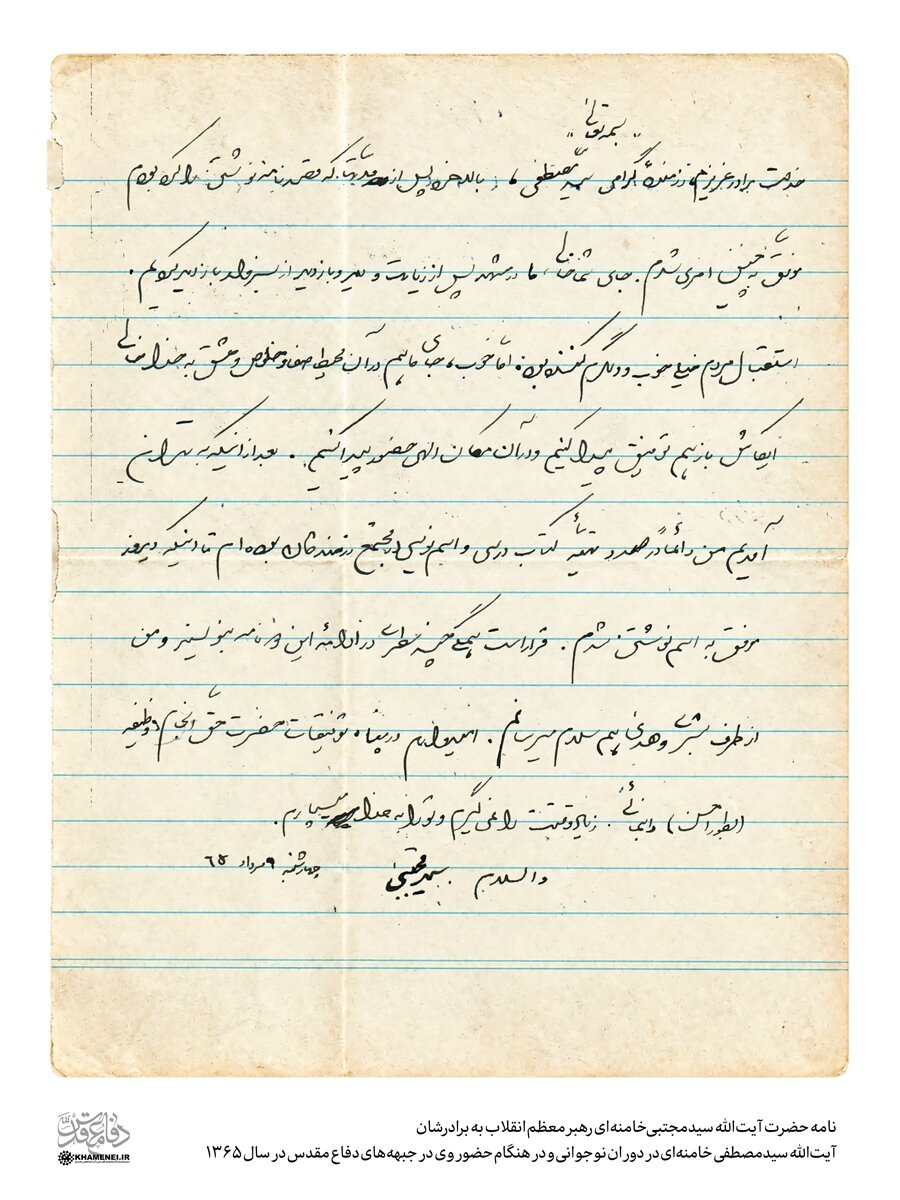 بسمه تعالی
خدمت برادر عزیزم رزمندهٔ گرامی سید مصطفی بالاخره پس از مدتها که قصد نامه نوشتن را کرده بودم
موفق به چنین امری شدم. جای شما خالی، ما در مشهد پس از زیارت و دید و بازدید از بازدید کردیم.
استقبال مردم خیلی خوب و دلگرم کننده بود. اما خوب، جای ما هم در آن محیط صفا و خلوص و عشق به خدا خالی
ایکاش باز هم توفیق پیدا کنیم و در آن مکان الهی حضور پیدا کنیم. بعد از اینکه به تهران
آمدیم من دائماً در صدد تهیهٔ کتاب درسی و اسم نویسی در مجتمع رزمندگان بوده ام تا اینکه دیروز
موفق به اسم نوشتن شدم. قرار است همگی در ادامهٔ این نامه بنویسند و من
از طرف بشری و هدی هم سلام میرسانم. امیدوارم در پناه توفیقات حضرت حق انجام وظیفه
(بطور احسن) نمائی. زیاد وقتت را نمی گیرم و تو را به خدا میسپارم.
والسلام سید مجتبی چهارشنبه ۹ مرداد ۶۵
دفاع مقدس
KHAMENEI.IR
نامه حضرت آیت‌الله سیدمجتبی خامنه‌ای رهبر معظم انقلاب به برادرشان
آیت‌الله سیدمصطفی خامنه‌ای در دوران نوجوانی و در هنگام حضور وی در جبهه‌های دفاع مقدس در سال ۱۳۶۵